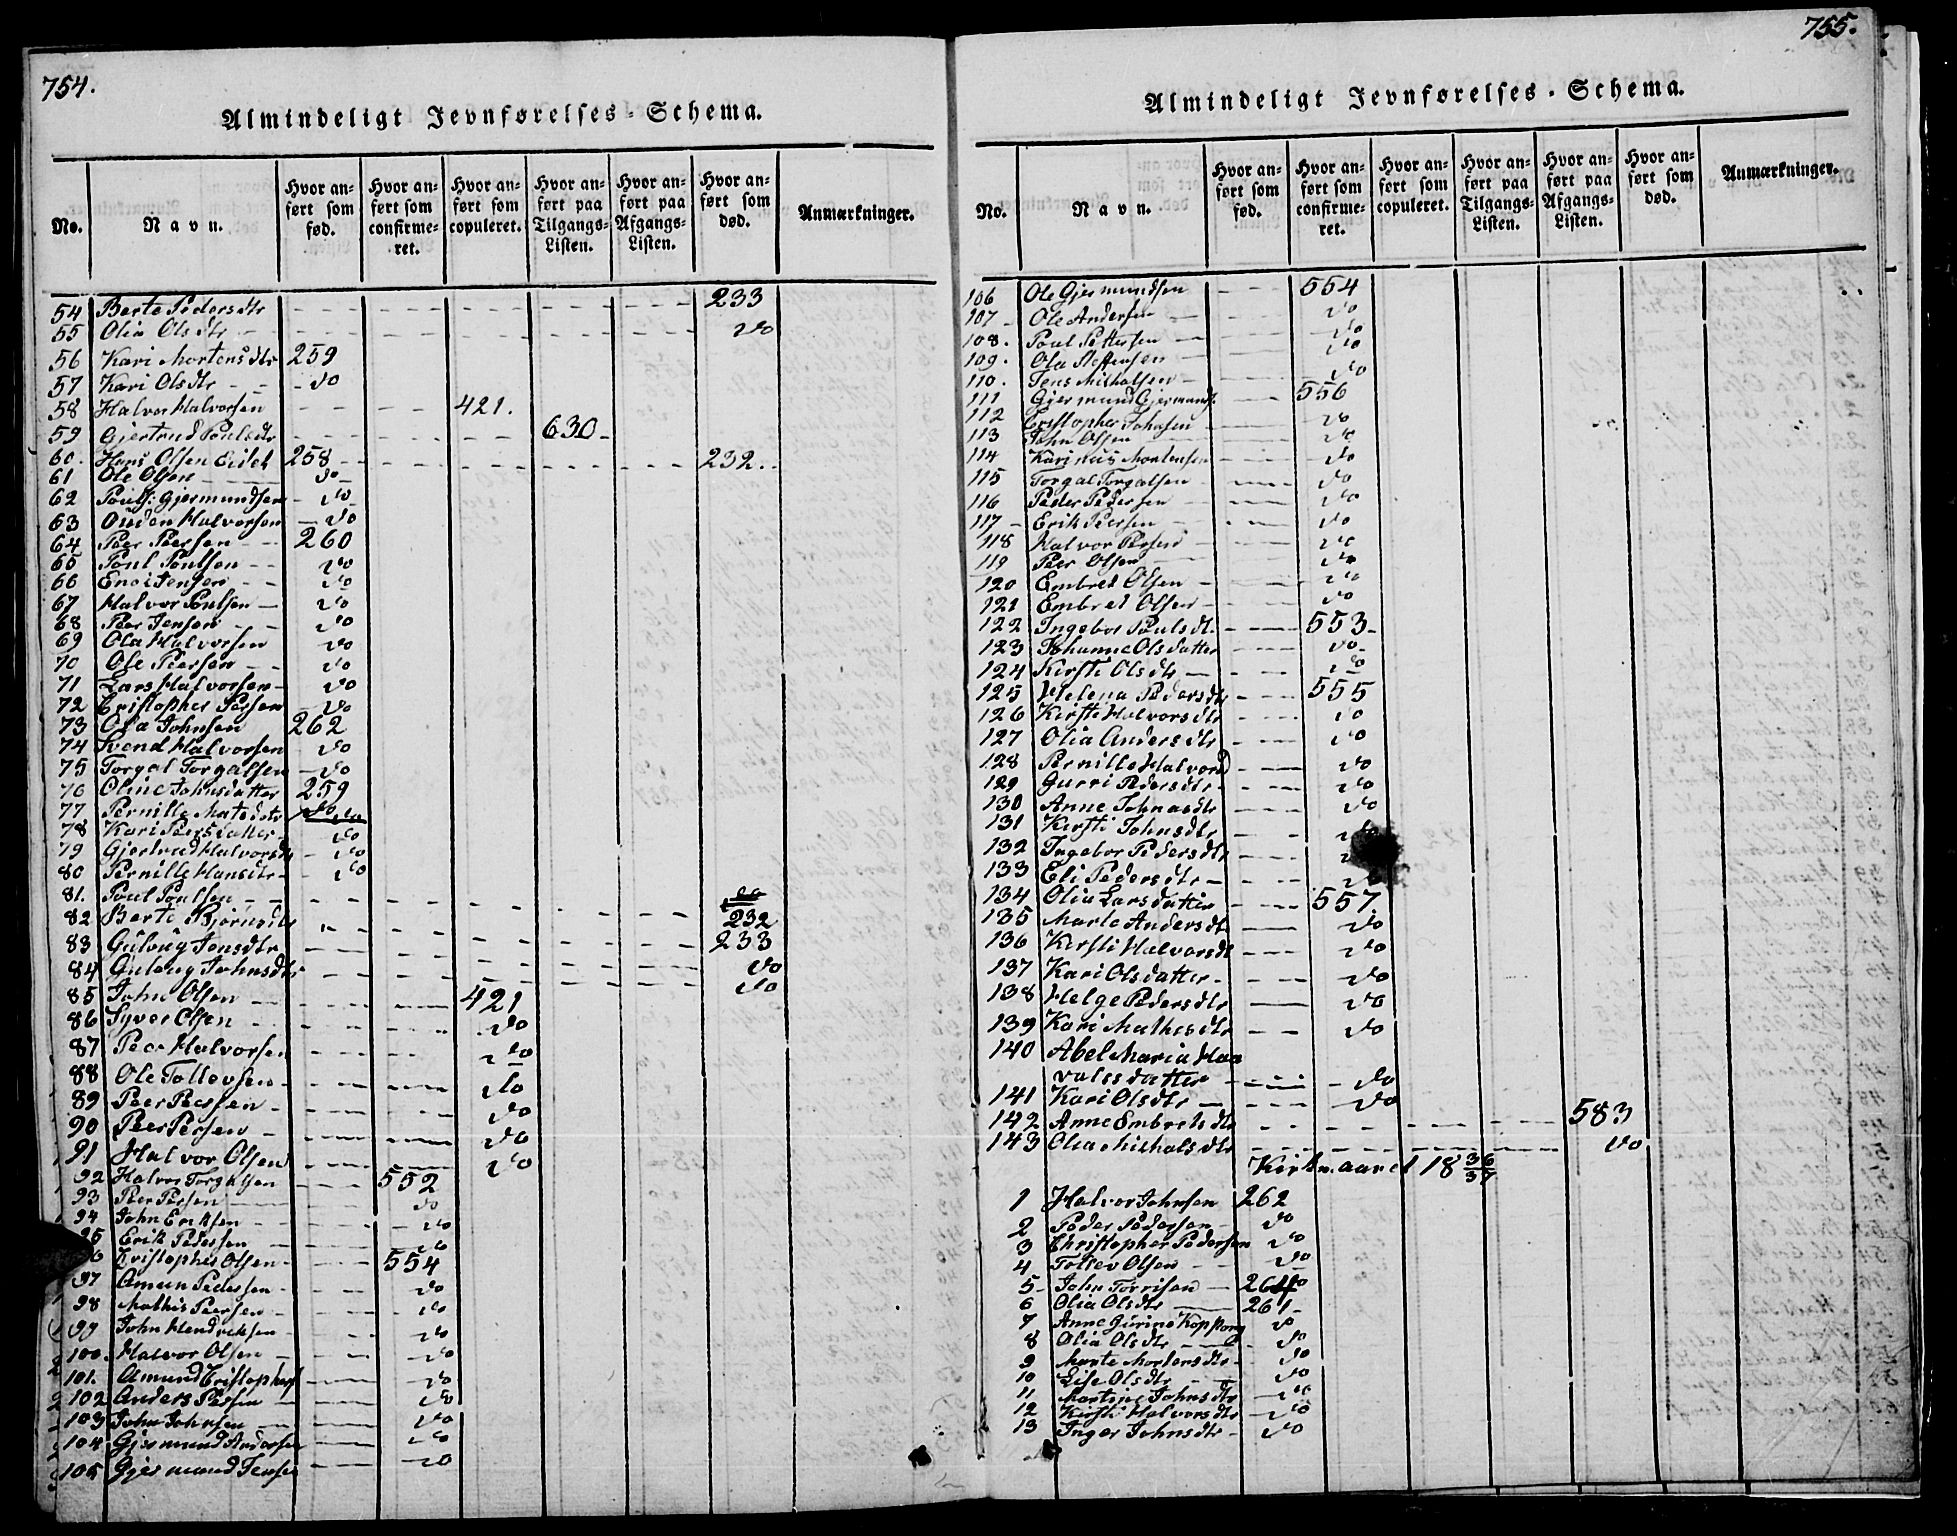 754.
Almindeligt Jevnførelses-Schema.
No. Navn. Hvor anført som fød. Hvor anført som confirmeret. Hvor anført som copuleret. Hvor anført paa Tilgangs-Listen. Hvor anført paa Afgangs-Listen. Hvor anført som død. Anmærkninger.
54 Berte Pedersdtr 233
55 Olia Olsdtr do
56 Kari Mortensdtr 259
57 Kari Olsdtr do
58 Halvor Halvorsen 421.
59 Gjertrud Poulsdtr 630
60. Hans Olsen Eidet 258 232.
61 Ole Olsen do
62 Pouls: Gjermundsen do
63 Ouden Halvorsen do
64 Peer Peersen 260
65 Poul Poulsen do
66 Engi Jensen do
67 Halvor Poulsen do
68 Peer Jensen do
69 Ola Halvorsen do
70 Ole Peersen do
71 Lars Halvorsen do
72 Cristopher Persen do
73 Ola Johnsen 262
74 Svend Halvorsen do
75 Torgal Torgalsen do
76 Oline Johnsdatter 259
77 Pernille Matsdtr do
78 Kari Peersdatter do
79 Gjertrud Halvorsdtr do
80 Pernille Hansdtr do
81. Poul Poulsen do
82 Berte Bjørnsdtr 232
83 Gulaug Jonsdtr 233
84 Gulaug Johnsdtr do
85 John Olsen 421 do
86 Syver Olsen do
87 Peer Halvorsen do
88 Ole Tollevsen do
89 Peer Peersen do
90 Peer Persen do
91 Halvor Olsen do
92 Halvor Torgalsen 552
93 Peer Persen do
94 John Eriksen do
95 Erik Pedersen do
96 Cristopher Olsen 554
97 Amun Pedersen do
98 Mathis Peersen do
99 John Hendriksen do
100. Halvor Olsen do
101. Amund Cristophers do
102 Anders Persen do
103 John Johnsen do
104 Gjermund Andersen do
105 Gjermund Jensen do
755.
Almindeligt Jevnførelses-Schema.
No. Navn. Hvor anført som fød. Hvor anført som confirmeret. Hvor anført som copuleret. Hvor anført paa Tilgangs-Listen. Hvor anført paa Afgangs-Listen. Hvor anført som død. Anmærkninger.
106 Ole Gjermundsen 554
107 Ole Andersen do
108. Poul Pettersen do
109. Ola Steffensen do
110. Jens Mikkelsen do
111 Gjermund Gjermunds. 556
112 Cristopher Johnsen do
113 John Olsen do
114 Karinus Mortensen do
115 Torgal Torgalsen do
116 Peder Pedersen do
117 Erik Peersen do
118 Halvor Persen do
119 Peer Olsen do
120 Embret Olsen do
121 Embret Olsen do
122 Ingebor Poulsdt. 553
123 Johanne Olsdatter do
124 Kirsti Olsdtr do
125 Helena Pedersdtr 555
126 Kirsti Halvorsdtr do
127 Olia Andersdtr do
128 Pernille Halvord do
129 Gurri Pedersdtr do
130 Anne Johnasdtr do
131 Kirsti Johnsdtr do
132 Ingebor Pedersdtr
133 Eli Pedersdtr do
134 Olia Larsdatter 557
135 Marte Andersdt do
136 Kirsti Halvorsdt do
137 Kari Olsdatter do
138 Helge Pedersdtr do
139 Kari Mathisdtr do
140 Abel Maria Haa
valssdatter do
141 Kari Olsdtr do
142 Anne Embretsdtr 583
143 Olia Michalsdtr do
Kirkn. aaret 18 36/37
1 Halvor Johnsen 262
2 Peder Pedersen do
3 Christopher Pedersen do
4 Tollev Olsen do
5 John Torrisen 264
6 Olia Olsdtr 261
7 Anne Gurine Koppang do
8 Olia Olsdtr do
9 Marte Mortensdtr do
10 Lise Olsdtr do
11 Martine Johnsdtr do
12 Kirsti Halvorsdtr do
13 Inger Johnsdtr do